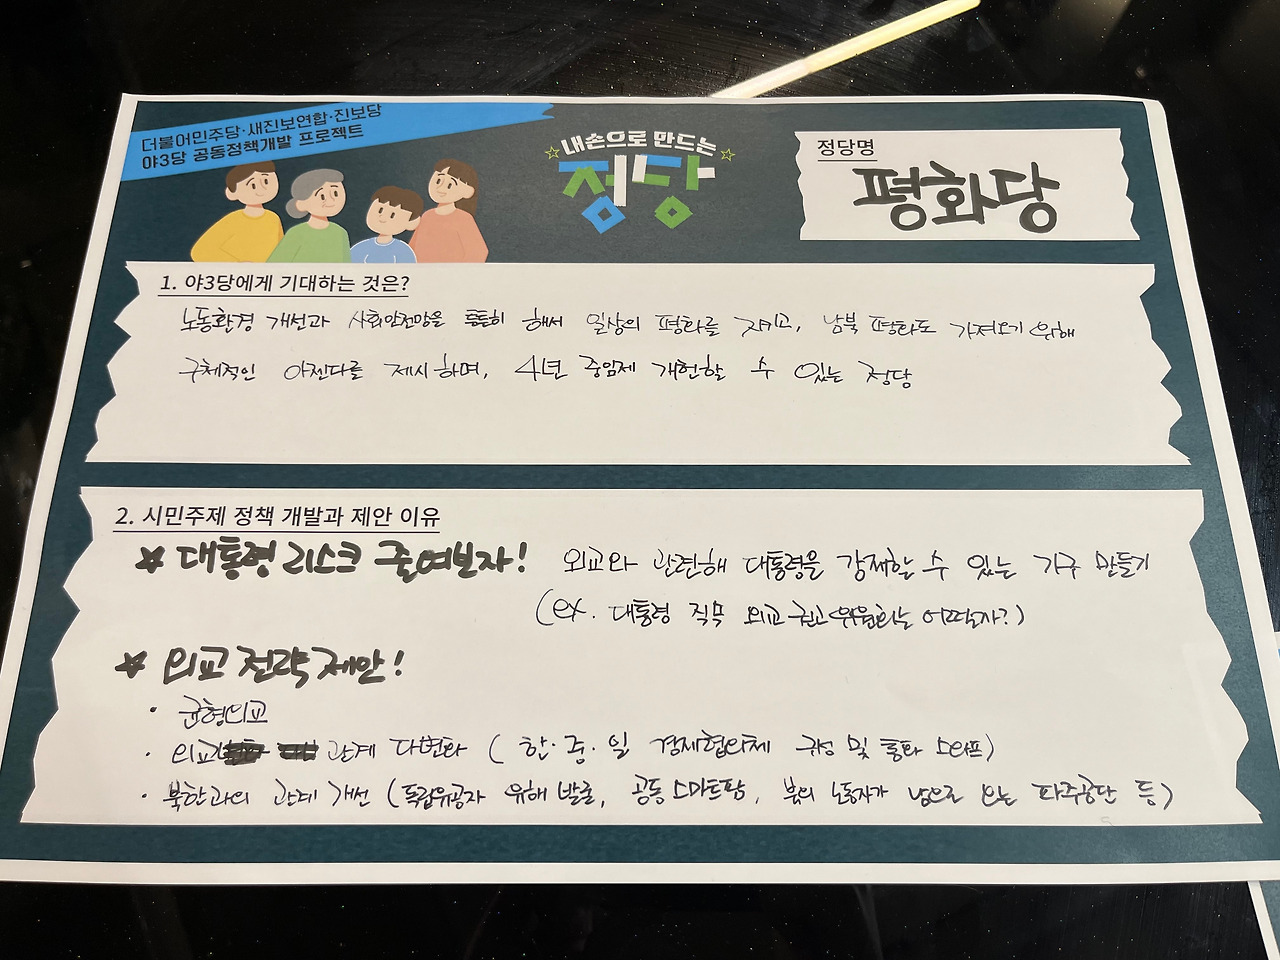 더불어민주당·새진보연합·진보당
야3당 공동정책개발 프로젝트
내손으로 만드는
정당
정당명
평화당
1. 야3당에게 기대하는 것은?
노동환경 개선과 사회안전망을 튼튼히 해서 일상의 평화를 지키고, 남북 평화도 가져오기 위해
구체적인 아젠다를 제시하며, 4년 중임제 개헌할 수 있는 정당
2. 시민주제 정책 개발과 제안 이유
☆ 대통령 리스크 줄여보자! 외교와 관련해 대통령을 강제할 수 있는 기구 만들기
(ex. 대통령 직무 외교 권고 위원회는 어떨지?)
☆ 외교 전략 제안!
· 균형외교
· 외교 관계 다변화 (한·중·일 경제협의체 구성 및 통화 스와프)
· 북한과의 관계 개선 (독립유공자 유해 발굴, 공동 스마트팜, 북의 노동자가 남으로 오는 파주공단 등)